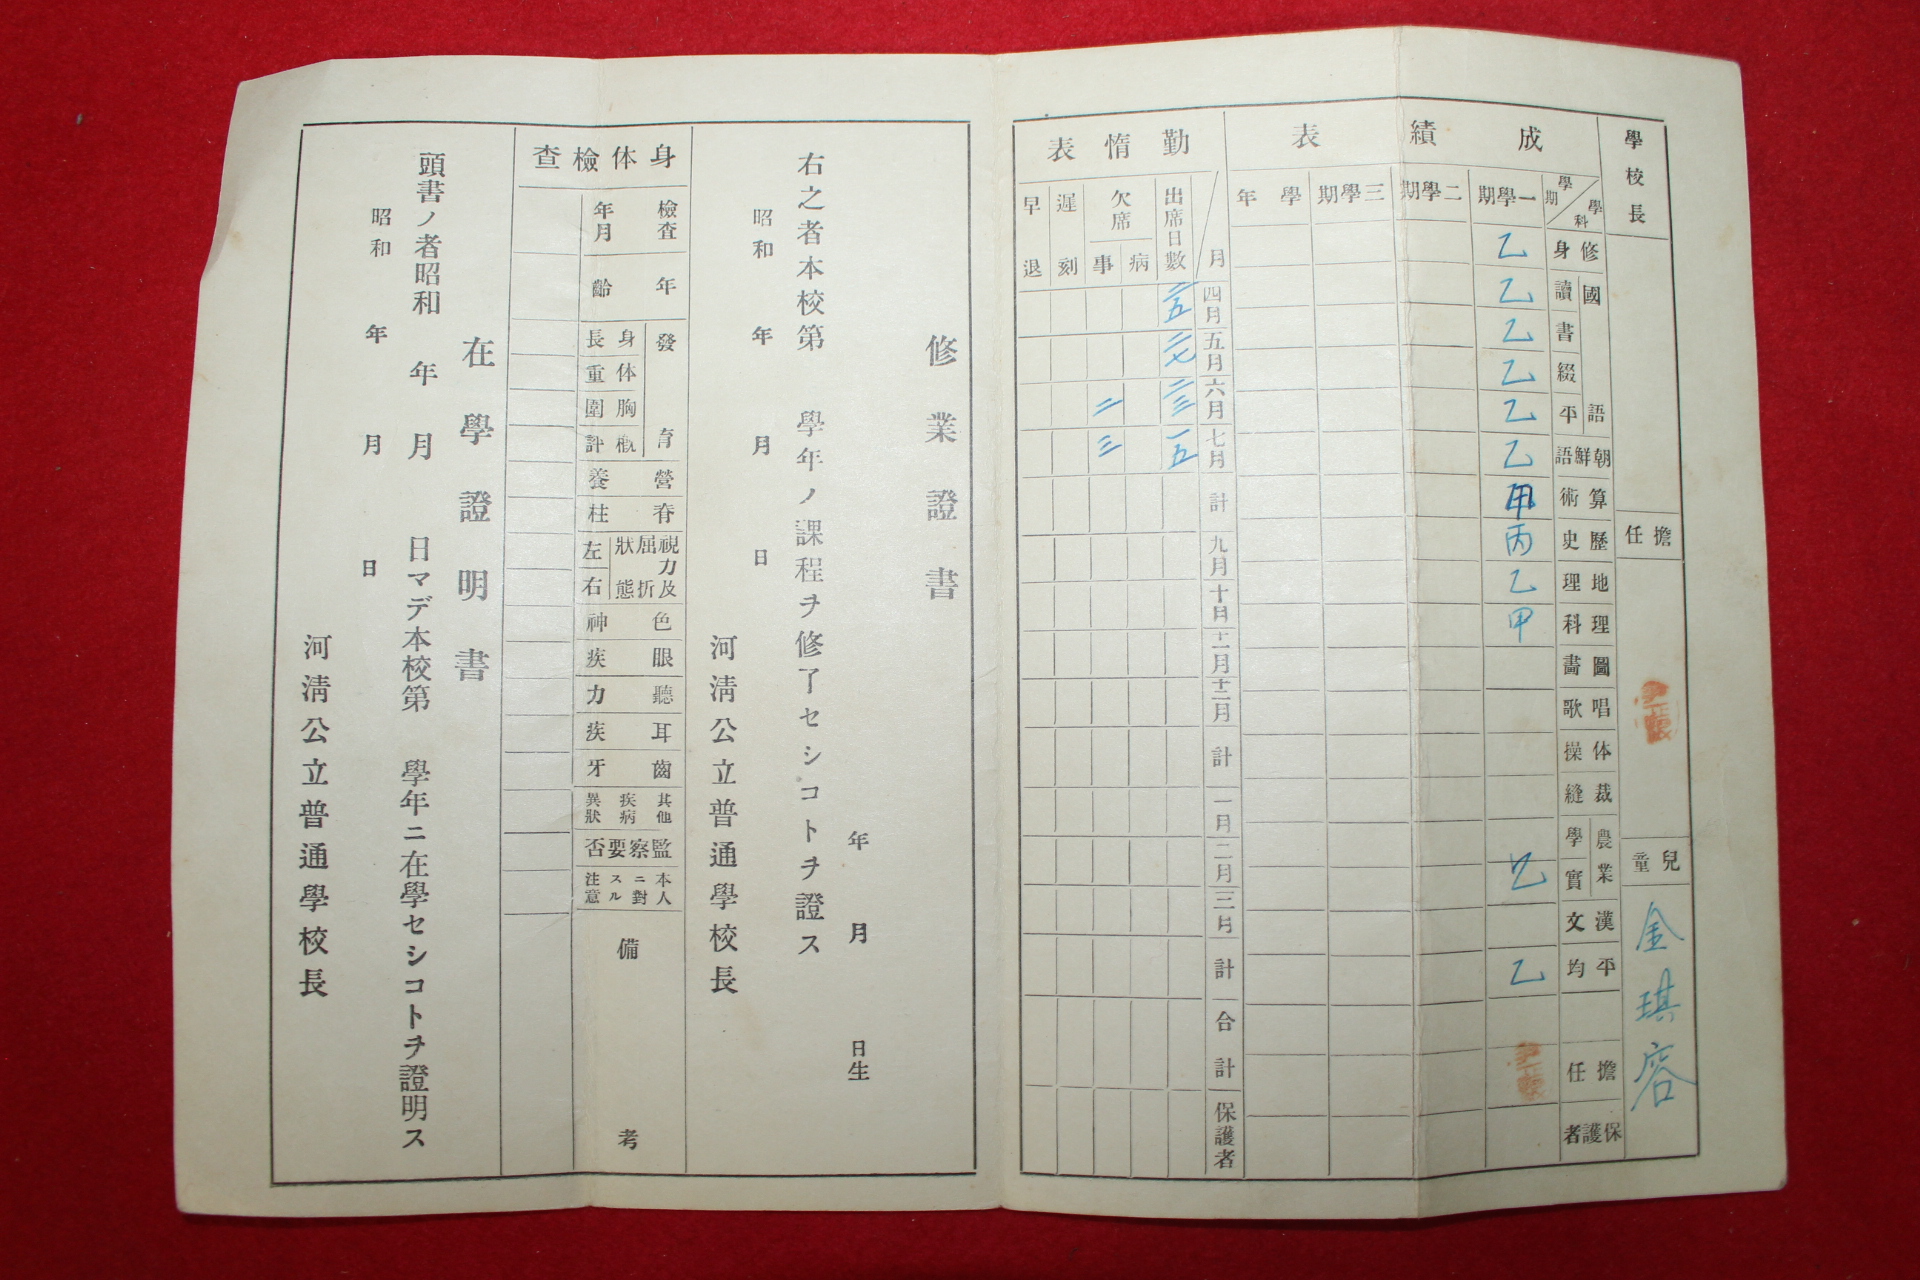 學校長
擔任
兒童
金琪容
成績表
學期 學科
一學期
二學期
三學期
學年
修身 乙
國語
讀 乙
書 乙
綴 乙
平 乙
朝鮮語 乙
算術 甲
歷史 丙
地理 乙
理科 甲
圖畵
唱歌
体操
裁縫
農業
學
實 乙
漢文
平均 乙
擔任
保護者
勤惰表
月
出席日數
欠席
病
事
遲刻
早退
四月 二五
五月 二七
六月 二三 二
七月 一五 三
計
九月
十月
十一月
十二月
計
一月
二月
三月
計
合計
保護者
修業證書
年 月 日生
右之者本校第 學年ノ課程ヲ修了セシコトヲ證ス
昭和 年 月 日
河淸公立普通學校長
身体檢査
檢査年月
年齡
發育
身長
体重
胸圍
槪評
營養
脊柱
視力及屈折狀態
左
右
色神
眼疾
聽力
耳疾
齒牙
其他疾病異狀
監察要否
本人ニ對スル注意
備考
在學證明書
頭書ノ者昭和 年 月 日マデ本校第 學年ニ在學セシコトヲ證明ス
昭和 年 月 日
河淸公立普通學校長